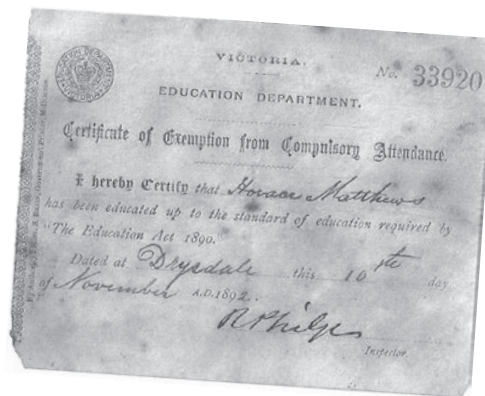 VICTORIA.
No. 33920
EDUCATION DEPARTMENT.
Certificate of Exemption from Compulsory Attendance.
I hereby Certify that Horace Matthews
has been educated up to the standard of education required by
"The Education Act 1890.
Dated at Drysdale this 10th day
of November A.D. 1892.
R Philps
Inspector.